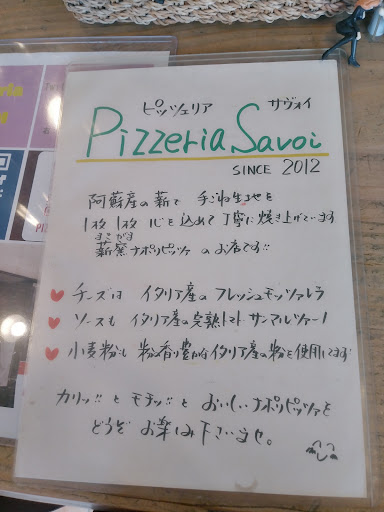 ピッツェリア サヴォイ
Pizzeria Savoi
SINCE 2012
阿蘇産の薪で 手ごね生地を
1枚1枚 心を込めて 丁寧に焼き上げています
まきがま
薪窯ナポリピッツァ のお店です!!
♥ チーズは イタリア産の フレッシュモッツァレラ
♥ ソースも イタリア産の完熟トマト サンマルツァーノ
♥ 小麦粉も 粉の香り豊かなイタリア産の粉を使用してます
カリッ!! と モチッ!! と おいしいナポリピッツァを
どうぞ お楽しみ下さいませ。